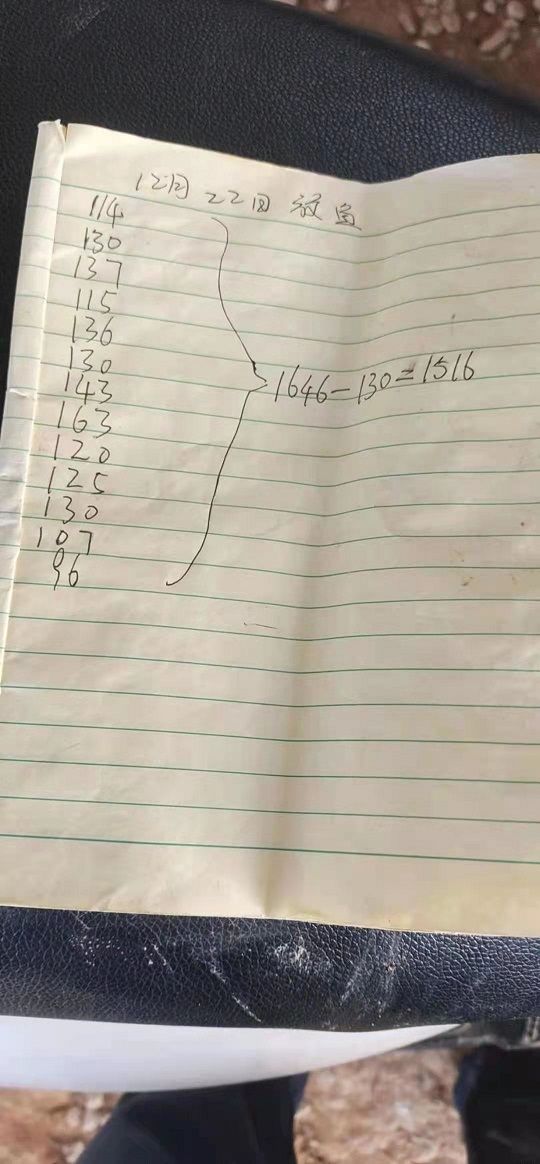 12月22日 放鱼
114
130
137
115
136
130
143
163
120
125
130
107
96
1646-130=1516